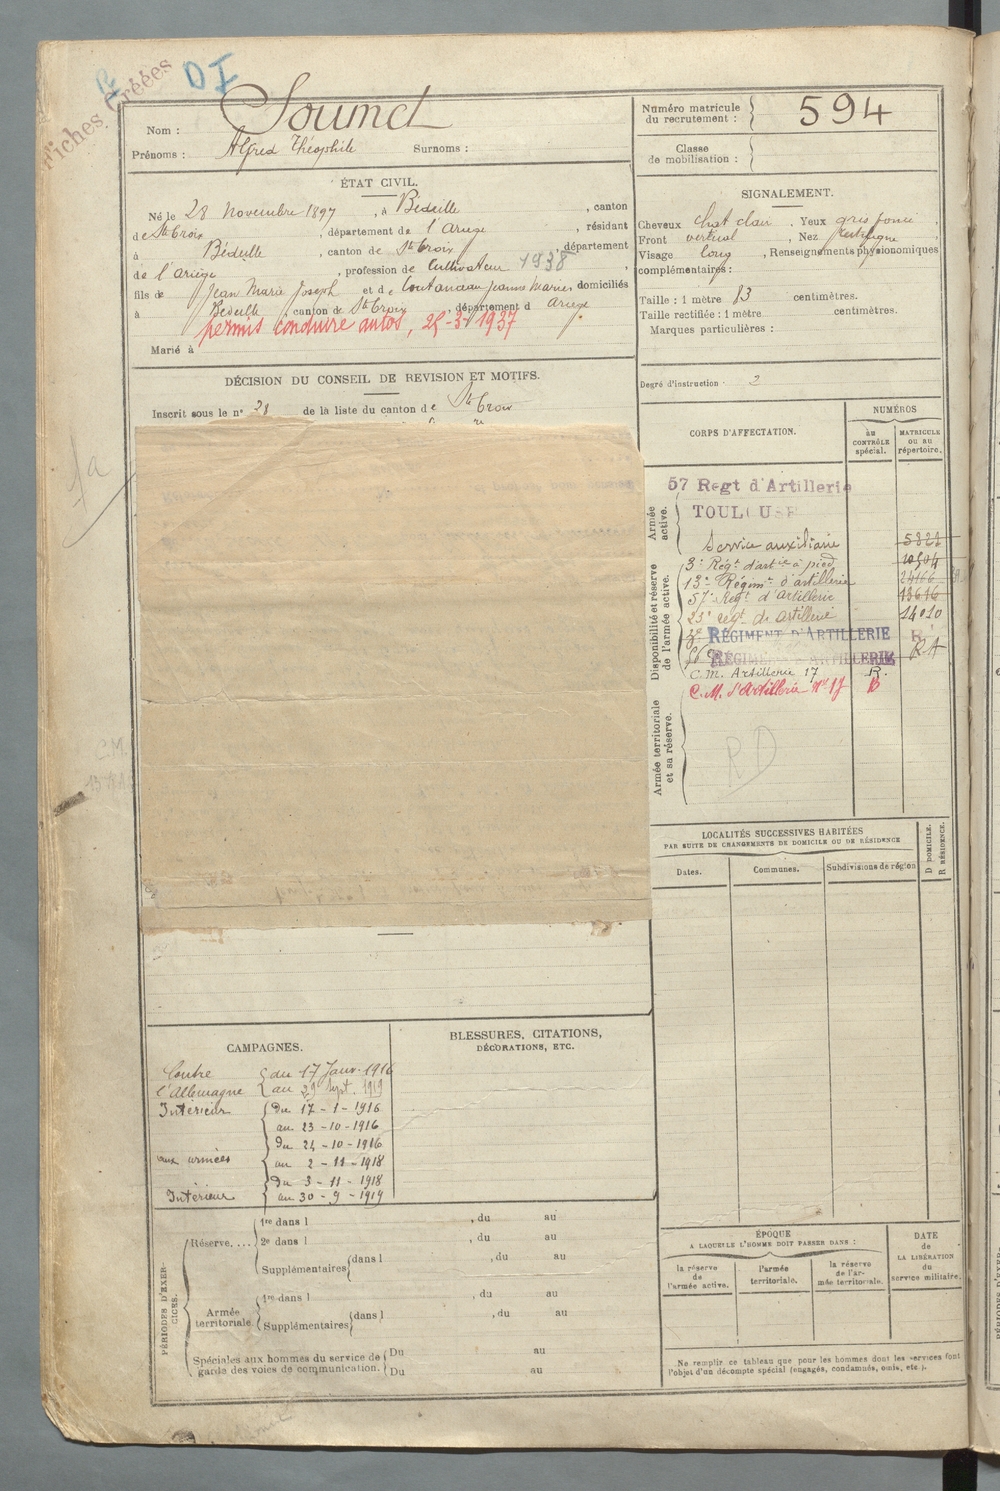 Fiches Créées
DI
Nom : Soumet
Prénoms : Alfred Théophile Surnoms :
Numéro matricule du recrutement : 594
Classe de mobilisation :
ÉTAT CIVIL.
Né le 28 Novembre 1897, à Bédeille, canton
de Ste Croix, département de l'Ariège, résidant
à Bédeille, canton de Ste Croix, département
de l'Ariège, profession de Cultivateur 1938
fils de Jean Marie Joseph et de Coutanceau Jeanne Marie domiciliés
à Bédeille, canton de Ste Croix, département d Ariège
permis conduire autos, 25-3-1937
Marié à
SIGNALEMENT.
Cheveux chat clair. Yeux gris foncé,
Front vertical, Nez rectiligne
Visage long, Renseignements physionomiques
complémentaires :
Taille : 1 mètre 73 centimètres.
Taille rectifiée : 1 mètre centimètres.
Marques particulières :
Degré d'instruction : 2
DÉCISION DU CONSEIL DE REVISION ET MOTIFS.
Inscrit sous le n° 21 de la liste du canton de Ste Croix
CORPS D'AFFECTATION.
NUMÉROS
au CONTRÔLE spécial.
MATRICULE ou au répertoire.
Armée active.
57 Regt d'Artillerie
TOULOUSE
Service auxiliaire 5322
Disponibilité et réserve de l'armée active.
3e Régt d'artie à pied 10504
13e Régimt d'artillerie 24166
57e Regt d'Artillerie 13616
23e regt de artillerie 14010
RÉGIMENT D'ARTILLERIE R.
RÉGIMENT D'ARTILLERIE RA
C.M. Artillerie 17 R.
C.M. d'Artillerie N° 17 B
Armée territoriale et sa réserve.
RD
LOCALITÉS SUCCESSIVES HABITÉES
PAR SUITE DE CHANGEMENTS DE DOMICILE OU DE RÉSIDENCE
Dates. Communes. Subdivisions de région
D DOMICILE.
R RÉSIDENCE.
CAMPAGNES.
Contre l'Allemagne
du 17 Janv. 1916
au 29 Sept. 1919
Intérieur
du 17 - 1 - 1916
au 23 - 10 - 1916
aux armées
du 24 - 10 - 1916
au 2 - 11 - 1918
Intérieur
du 3 - 11 - 1918
au 30 - 9 - 1919
BLESSURES, CITATIONS,
DÉCORATIONS, ETC.
PÉRIODES D'EXERCICES.
Réserve,....
1re dans l , du au
2e dans l , du au
Supplémentaires dans l , du au
Armée territoriale
1re dans l , du au
Supplémentaires dans l , du au
Spéciales aux hommes du service de garde des voies de communication.
Du au
Du au
ÉPOQUE
A LAQUELLE L'HOMME DOIT PASSER DANS :
la réserve de l'armée active.
l'armée territoriale.
la réserve de l'armée territoriale.
DATE de LA LIBÉRATION du service militaire.
Ne remplir ce tableau que pour les hommes dont les services font
l'objet d'un décompte spécial (engagés, condamnés, omis, etc.).